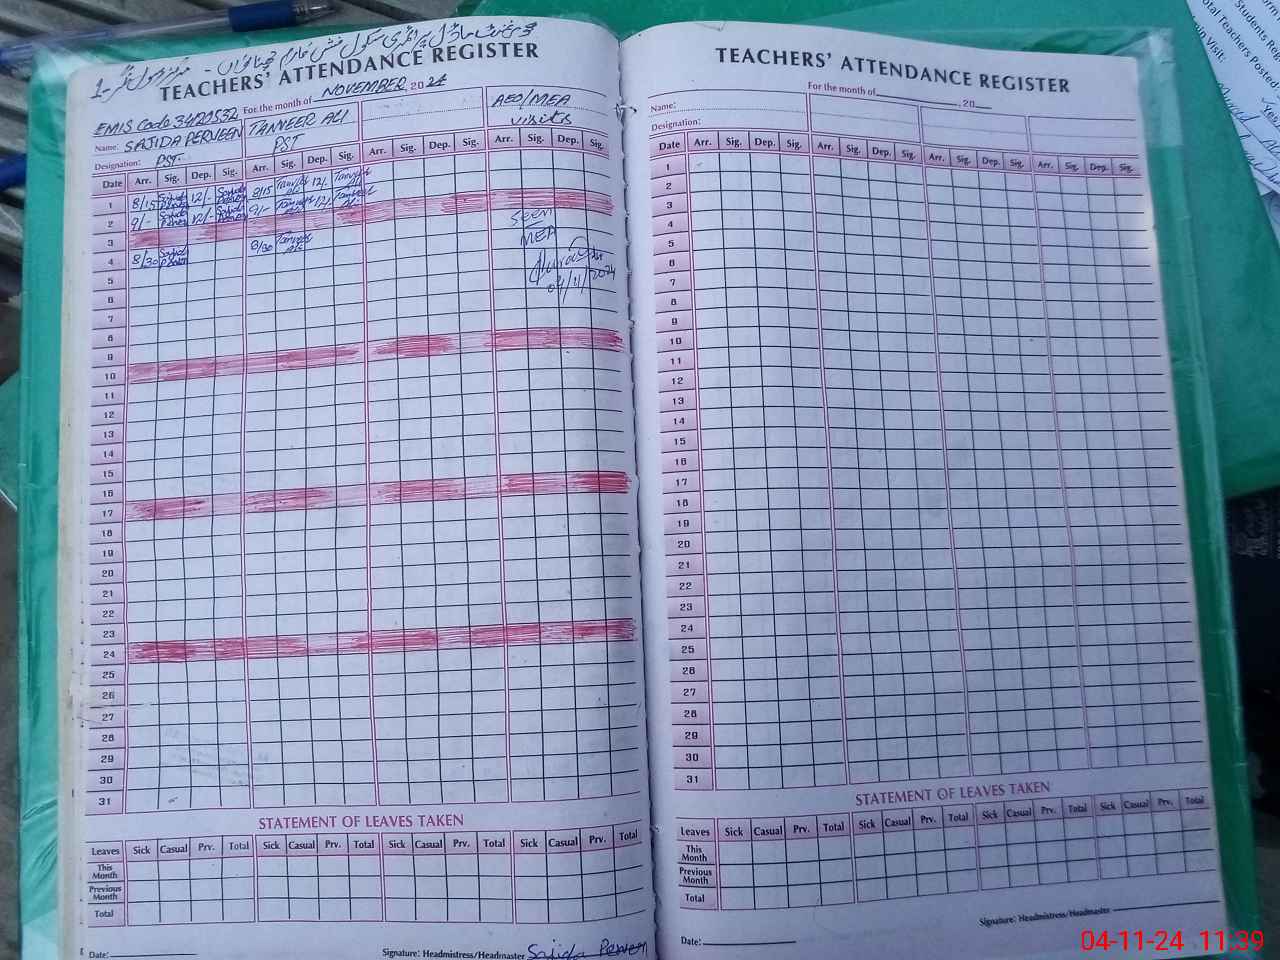 گورنمنٹ ماڈل پرائمری سکول
TEACHERS' ATTENDANCE REGISTER
For the month of NOVEMBER, 2024
EMIS Code 34120532
Name: SAJIDA PERVEEN TANVEER ALI AEO/MEA
Designation: PST. PST visits
Date Arr. Sig. Dep. Sig. Arr. Sig. Dep. Sig. Arr. Sig. Dep. Sig. Arr. Sig. Dep. Sig.
1 8/15 Sajida Perveen 12/- Sajida Perveen 8/15 Tanveer Ali 12/- Tanveer Ali
2 9/- Sajida Perveen 12/- Sajida Perveen 9/- Tanveer Ali 12/- Tanveer Ali
3
4 8/30 Sajida Perveen 8/30 Tanveer Ali
SEEN
MEA
04/11/2024
5
6
7
8
9
10
11
12
13
14
15
16
17
18
19
20
21
22
23
24
25
26
27
28
29
30
31
STATEMENT OF LEAVES TAKEN
Leaves Sick Casual Prv. Total Sick Casual Prv. Total Sick Casual Prv. Total Sick Casual Prv. Total
This Month
Previous Month
Total
Date: Signature: Headmistress/Headmaster Sajida Perveen
TEACHERS' ATTENDANCE REGISTER
For the month of , 20
Name:
Designation:
Date Arr. Sig. Dep. Sig. Arr. Sig. Dep. Sig. Arr. Sig. Dep. Sig. Arr. Sig. Dep. Sig.
1
2
3
4
5
6
7
8
9
10
11
12
13
14
15
16
17
18
19
20
21
22
23
24
25
26
27
28
29
30
31
STATEMENT OF LEAVES TAKEN
Leaves Sick Casual Prv. Total Sick Casual Prv. Total Sick Casual Prv. Total Sick Casual Prv. Total
This Month
Previous Month
Total
Signature: Headmistress/Headmaster
Date:
Students Regis
Total Teachers Posted
Visit:
04-11-24 11:39